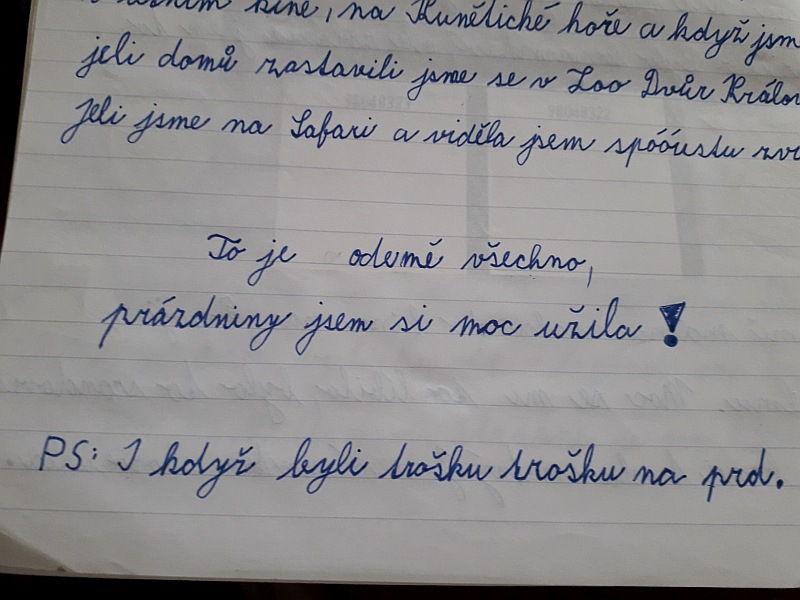 kině, na Kunětické hoře a když jsm
jeli domů zastavili jsme se v Zoo Dvůr Králov
Jeli jsme na Safari a viděla jsem spóóustu zví
To je odemě všechno,
prázdniny jsem si moc užila!
PS: I když byli trošku trošku na prd.